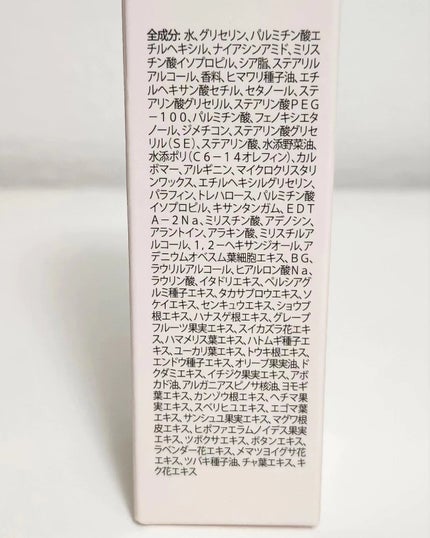 全成分: 水、グリセリン、パルミチン酸エ
チルヘキシル、ナイアシンアミド、ミリス
チン酸イソプロピル、シア脂、ステアリル
アルコール、香料、ヒマワリ種子油、エチ
ルヘキサン酸セチル、セタノール、ステ
アリン酸グリセリル、ステアリン酸PEG
-100、パルミチン酸、フェノキシエタ
ノール、ジメチコン、ステアリン酸グリセ
リル(SE)、ステアリン酸、水添野菜油、
水添ポリ(C6-14オレフィン)、カル
ボマー、アルギニン、マイクロクリスタリ
ンワックス、エチルヘキシルグリセリン、
パラフィン、トレハロース、パルミチン酸
イソプロピル、キサンタンガム、EDT
A-2Na、ミリスチン酸、アデノシン、
アラントイン、アラキン酸、ミリスチルア
ルコール、1,2-ヘキサンジオール、ア
デニウムオベスム葉細胞エキス、BG、
ラウリルアルコール、ヒアルロン酸Na、
ラウリン酸、イタドリエキス、ペルシアグ
ルミ種子エキス、タカサブロウエキス、ソ
ケイエキス、センキュウエキス、ショウブ
根エキス、ハナスゲ根エキス、グレープ
フルーツ果実エキス、スイカズラ花エキ
ス、ハマメリス葉エキス、ハトムギ種子エ
キス、ユーカリ葉エキス、トウキ根エキス、
エンドウ種子エキス、オリーブ果実油、ド
クダミエキス、イチジク果実エキス、アボ
カド油、アルガニアスピノサ核油、ヨモギ
葉エキス、カンゾウ根エキス、ヘチマ果
実エキス、スベリヒユエキス、エゴマ葉
エキス、サンシュユ果実エキス、マグワ根
皮エキス、ヒポファエラムノイデス果実エキ
ス、ツボクサエキス、ボタンエキス、
ラベンダー花エキス、メマツヨイグサ花
エキス、ツバキ種子油、チャ葉エキス、キ
ク花エキス